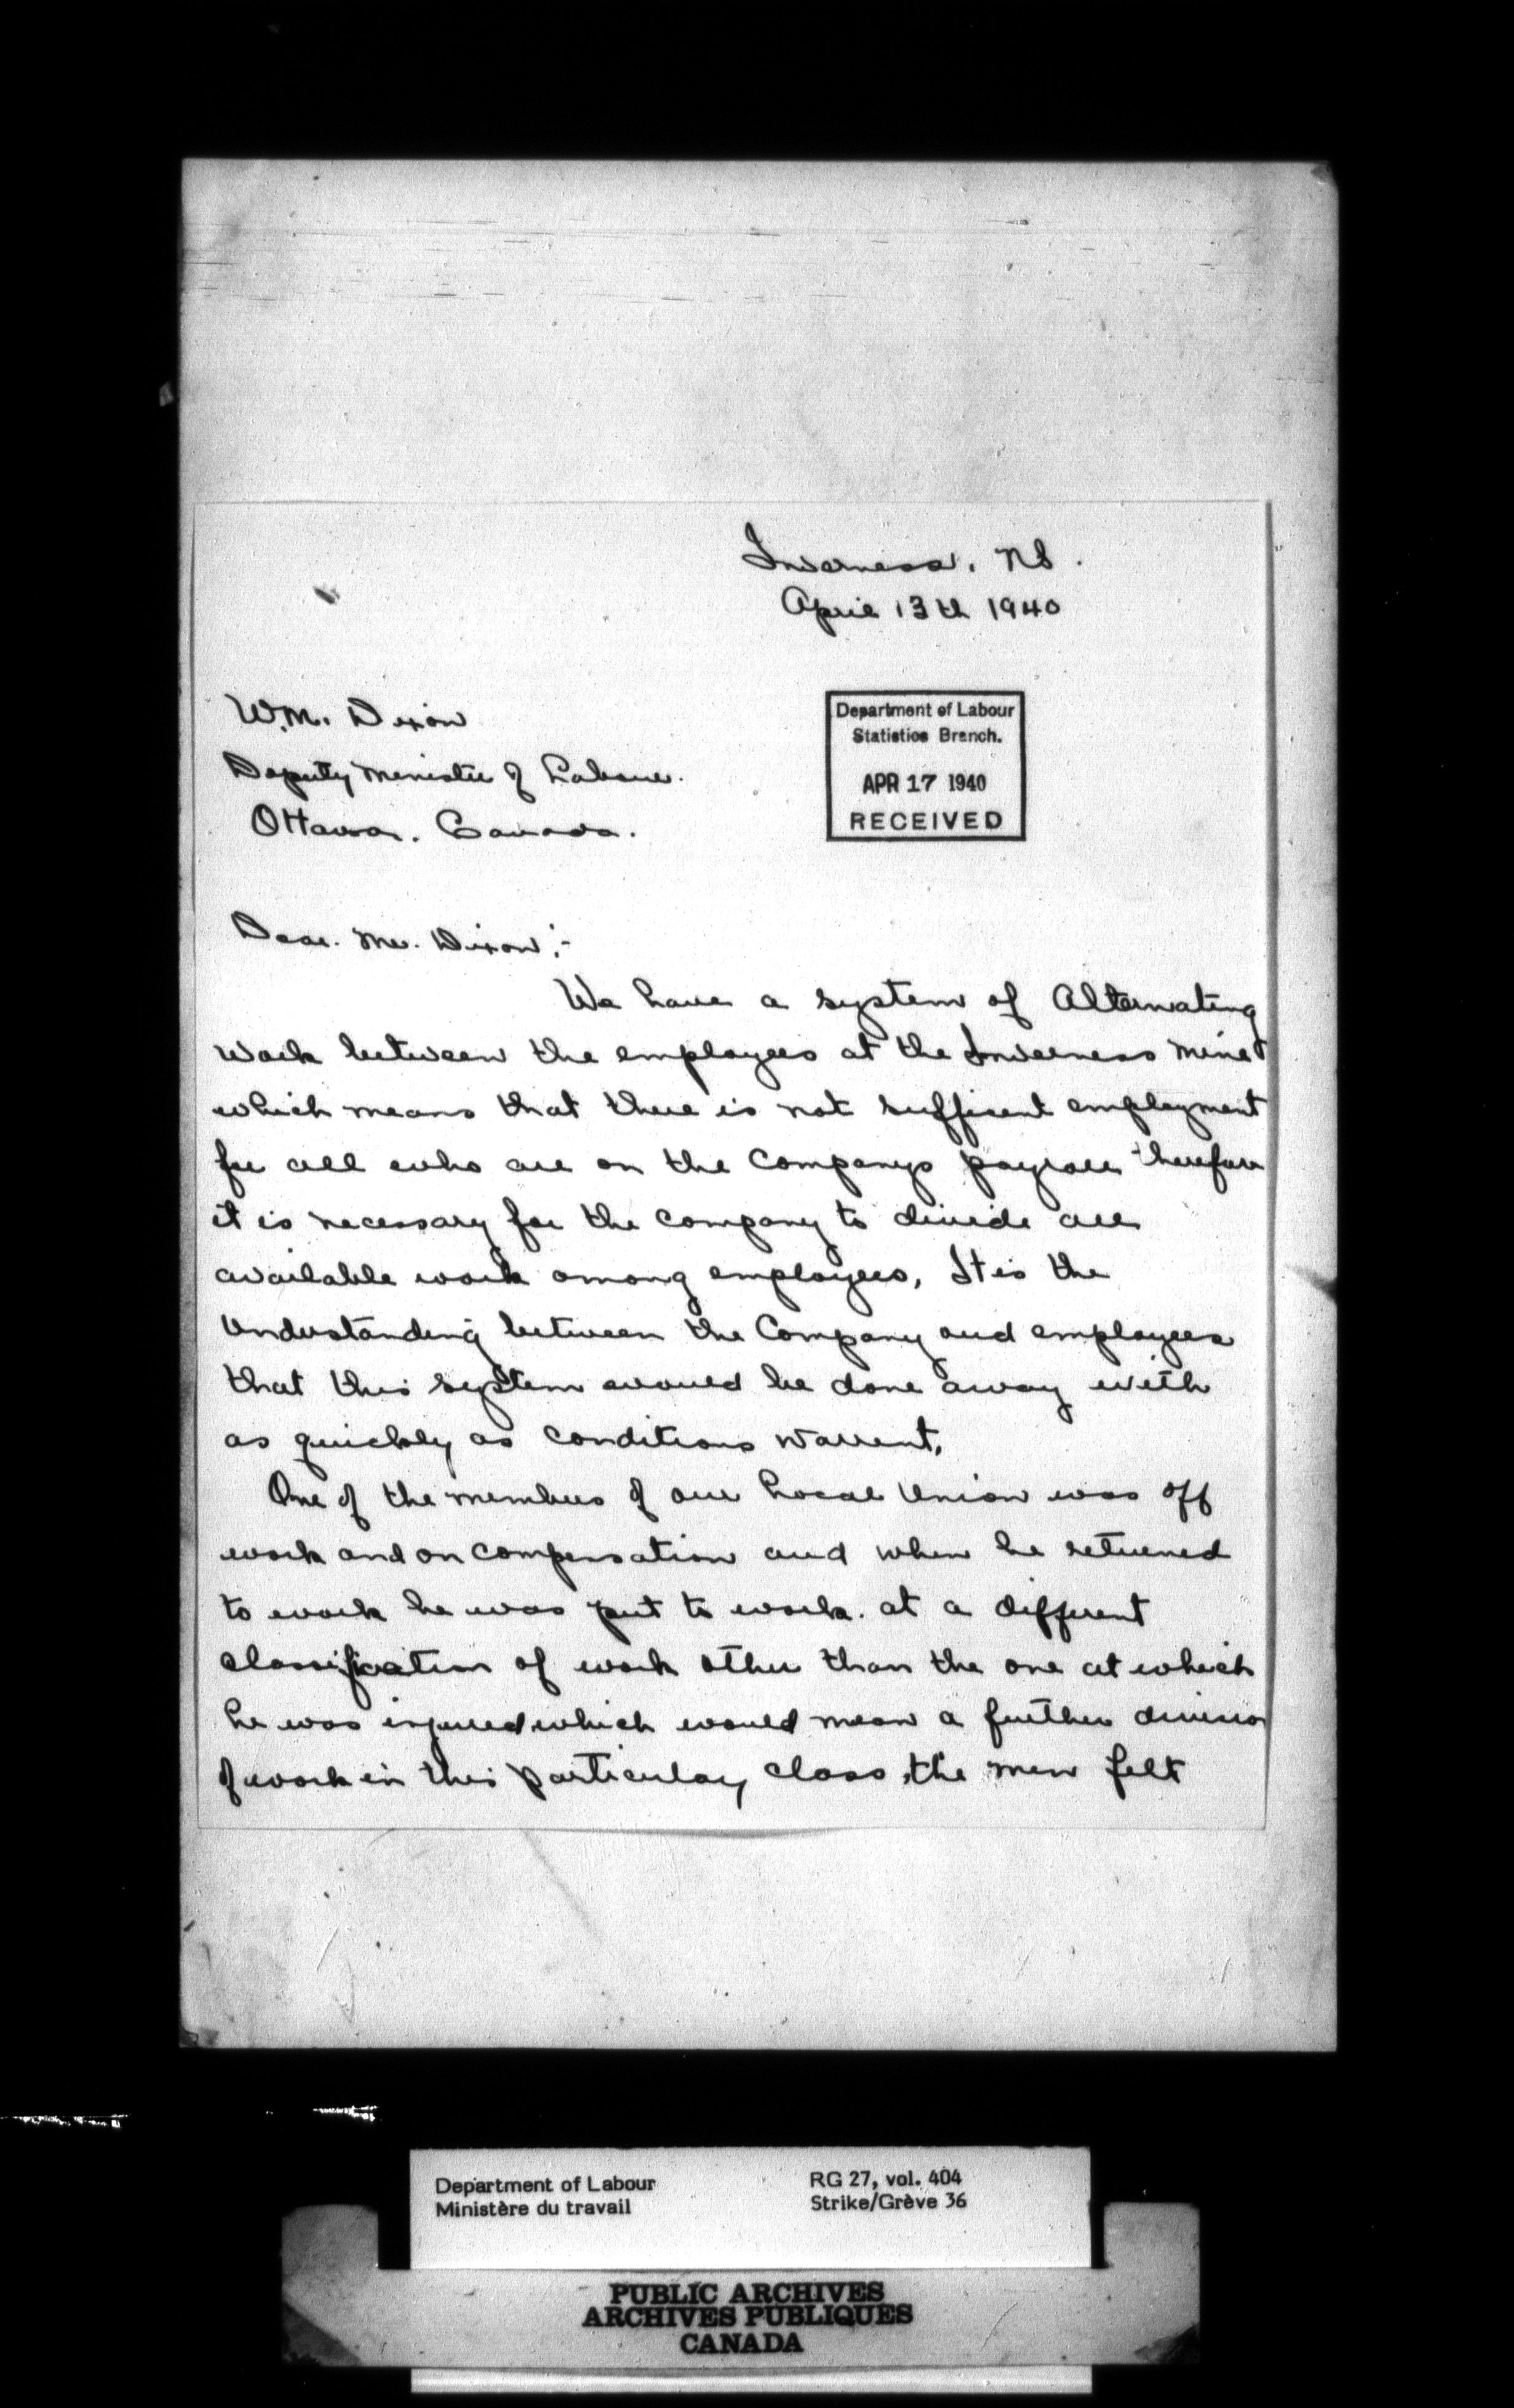 Inverness. NS.
April 13th 1940
W.M. Dixon
Deputy Minister of Labour.
Ottawa. Canada.
Department of Labour
Statistics Branch.
APR 17 1940
RECEIVED
Dear. Mr. Dixon:-
We have a system of Alternating
work between the employees at the Inverness mine
which means that there is not sufficent employment
for all who are on the Companys payroll therefore
it is necessary for the company to divide all
available work among employees, It is the
Understanding between the Company and employees
that this system would be done away with
as quickly as conditions warrent.
One of the members of our Local Union was off
work and on compensation and when he returned
to work he was put to work. at a different
classification of work other than the one at which
he was injured which would mean a further division
of work in this particular class, the men felt
Department of Labour
Ministère du travail
RG 27, vol. 404
Strike/Grève 36
PUBLIC ARCHIVES
ARCHIVES PUBLIQUES
CANADA